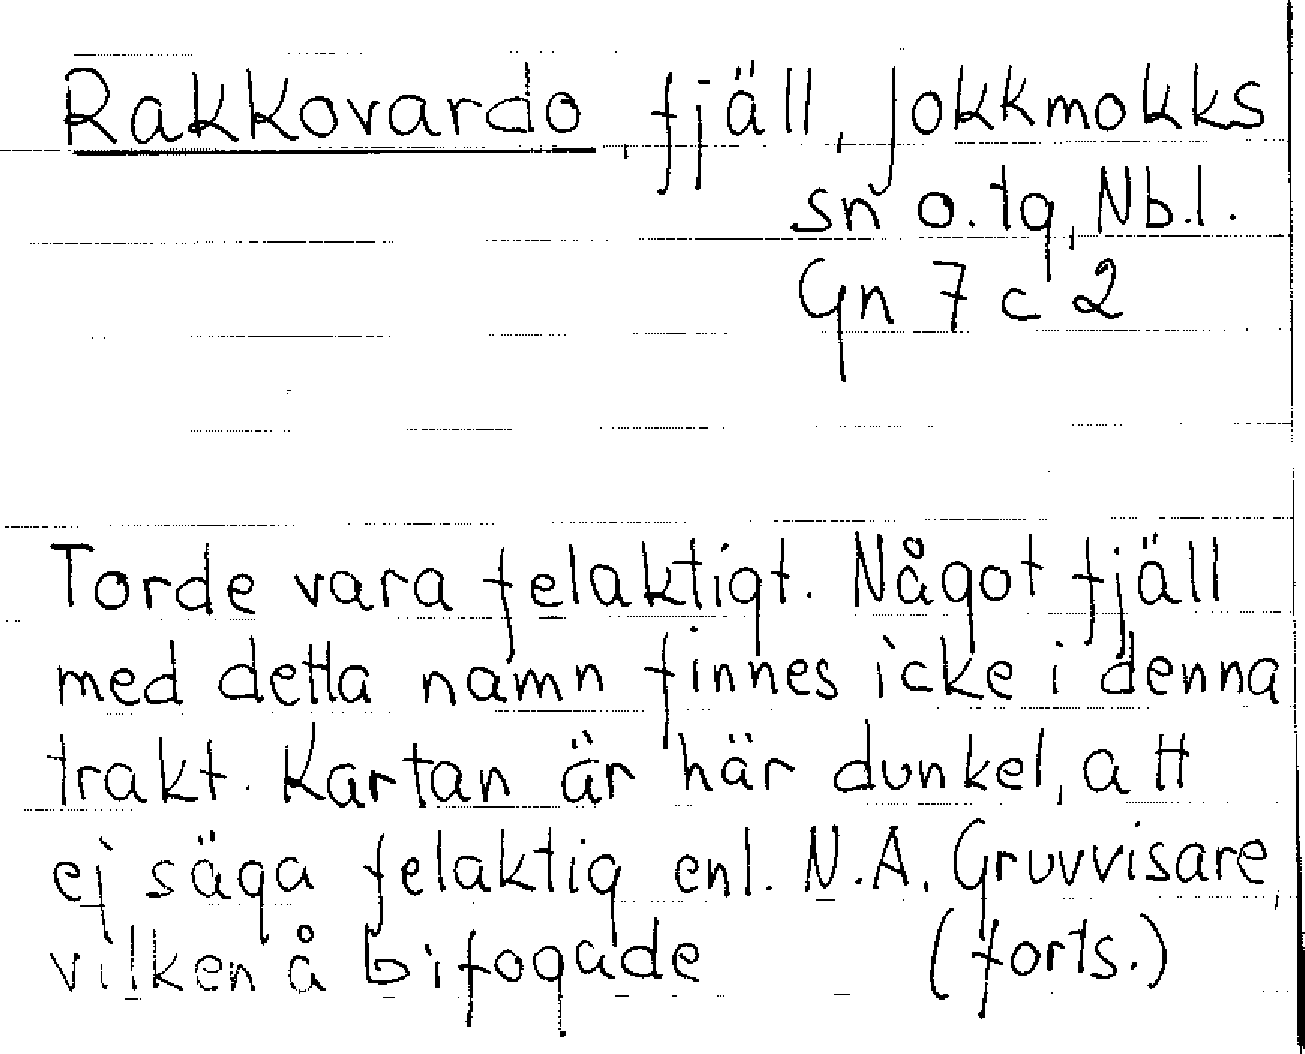 Rakkovardo, fjäll, Jokkmokks
sn o. tg, Nb.l.
Gn 7 c 2
Torde vara felaktigt. Något fjäll
med detta namn finnes icke i denna
trakt. Kartan är här dunkel, att
ej säga felaktig enl. N.A. Gruvvisare,
vilken å bifogade (forts.)